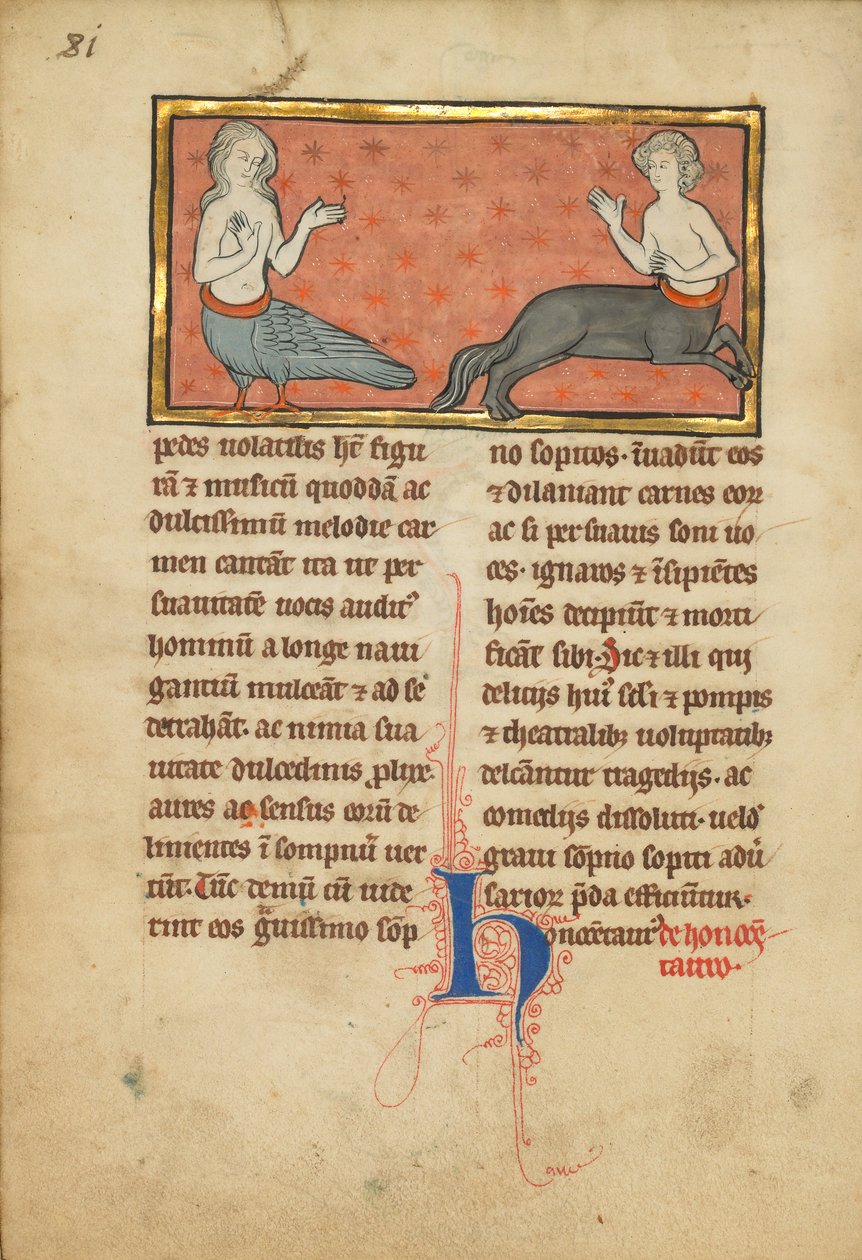 81
pedes uolatilis hn̄t figu
rā ⁊ musicū quoddā ac
dulcissimū melodie car
men cantāt ita ut per
suauitatē uocis auditꝰ
hominū a longe naui
gantiū mulceāt ⁊ ad se
detrahāt. ac nimia sua
uitate dulcedinis ꝓlixe
aures ac sensus eorū de
linientes ī sompnū uer
tūt. Tūc demū cū uide
rint eos gͣuissimo sōp
no sopitos. īuadūt eos
⁊ dilaniant carnes eoꝝ
ac si per suauis soni uo
ces. ignaros ⁊ īsipiētes
hoīes decipiūt ⁊ morti
ficāt sibi. Sic ⁊ illi qui
delicijs huiꝰ scl̄i ⁊ pompis
⁊ theatralibꝫ uoluptatibꝫ
delcāntur tragedijs. ac
comedijs dissoluti. uelꝰ
graui sōpno sopiti adu̾
sarioꝝ p̄da efficiūtur.
honocētaurꝰ de honocē
tauro.